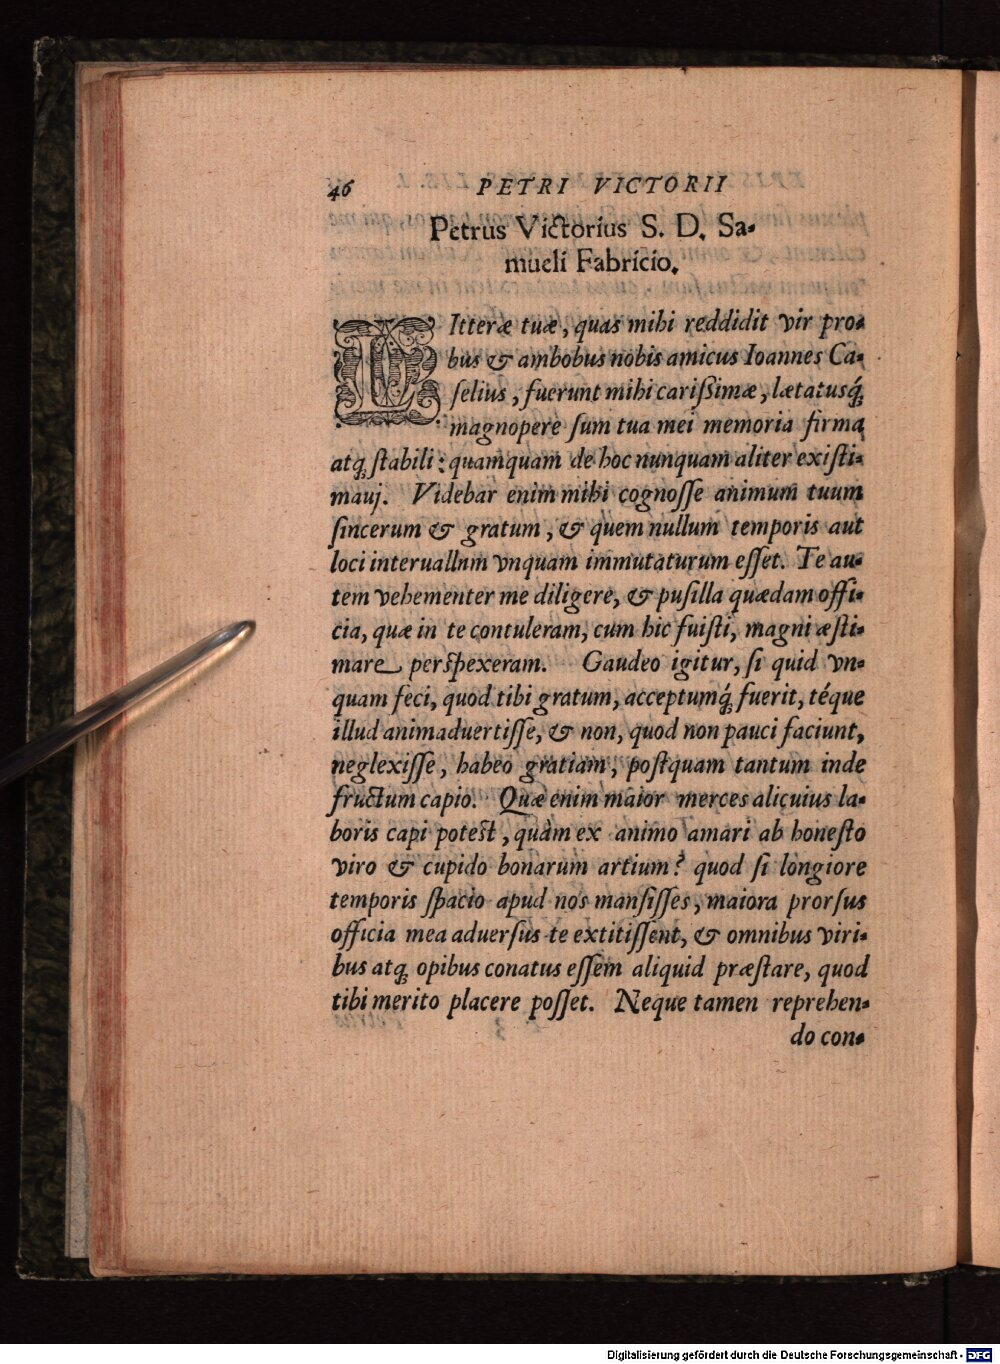 46 PETRI VICTORII
Petrus Victorius S. D. Sa-
mueli Fabricio.
LItteræ tuæ, quas mihi reddidit vir pro-
bus & ambobus nobis amicus Ioannes Ca-
ſelius, fuerunt mihi cariſsimæ, lætatusq́;
magnopere ſum tua mei memoria firma
atq; ſtabili: quamquam de hoc nunquam aliter exiſti-
mauj. Videbar enim mihi cognoſſe animum tuum
ſincerum & gratum, & quem nullum temporis aut
loci interuallum vnquam immutaturum eſſet. Te au-
tem vehementer me diligere, & puſilla quædam offi-
cia, quæ in te contuleram, cum hic fuiſti, magni æſti-
mare perſpexeram. Gaudeo igitur, ſi quid vn-
quam feci, quod tibi gratum, acceptumq́; fuerit, téque
illud animaduertiſſe, & non, quod non pauci faciunt,
neglexiſſe, habeo gratiam, poſtquam tantum inde
fructum capio. Quæ enim maior merces alicuius la-
boris capi poteſt, quàm ex animo amari ab honeſto
viro & cupido bonarum artium? quod ſi longiore
temporis ſpacio apud nos manſiſſes, maiora prorſus
officia mea aduerſus te extitiſſent, & omnibus viri-
bus atq; opibus conatus eſſem aliquid præſtare, quod
tibi merito placere poſſet. Neque tamen reprehen-
do con-
Digitalisierung gefördert durch die Deutsche Forschungsgemeinschaft - DFG